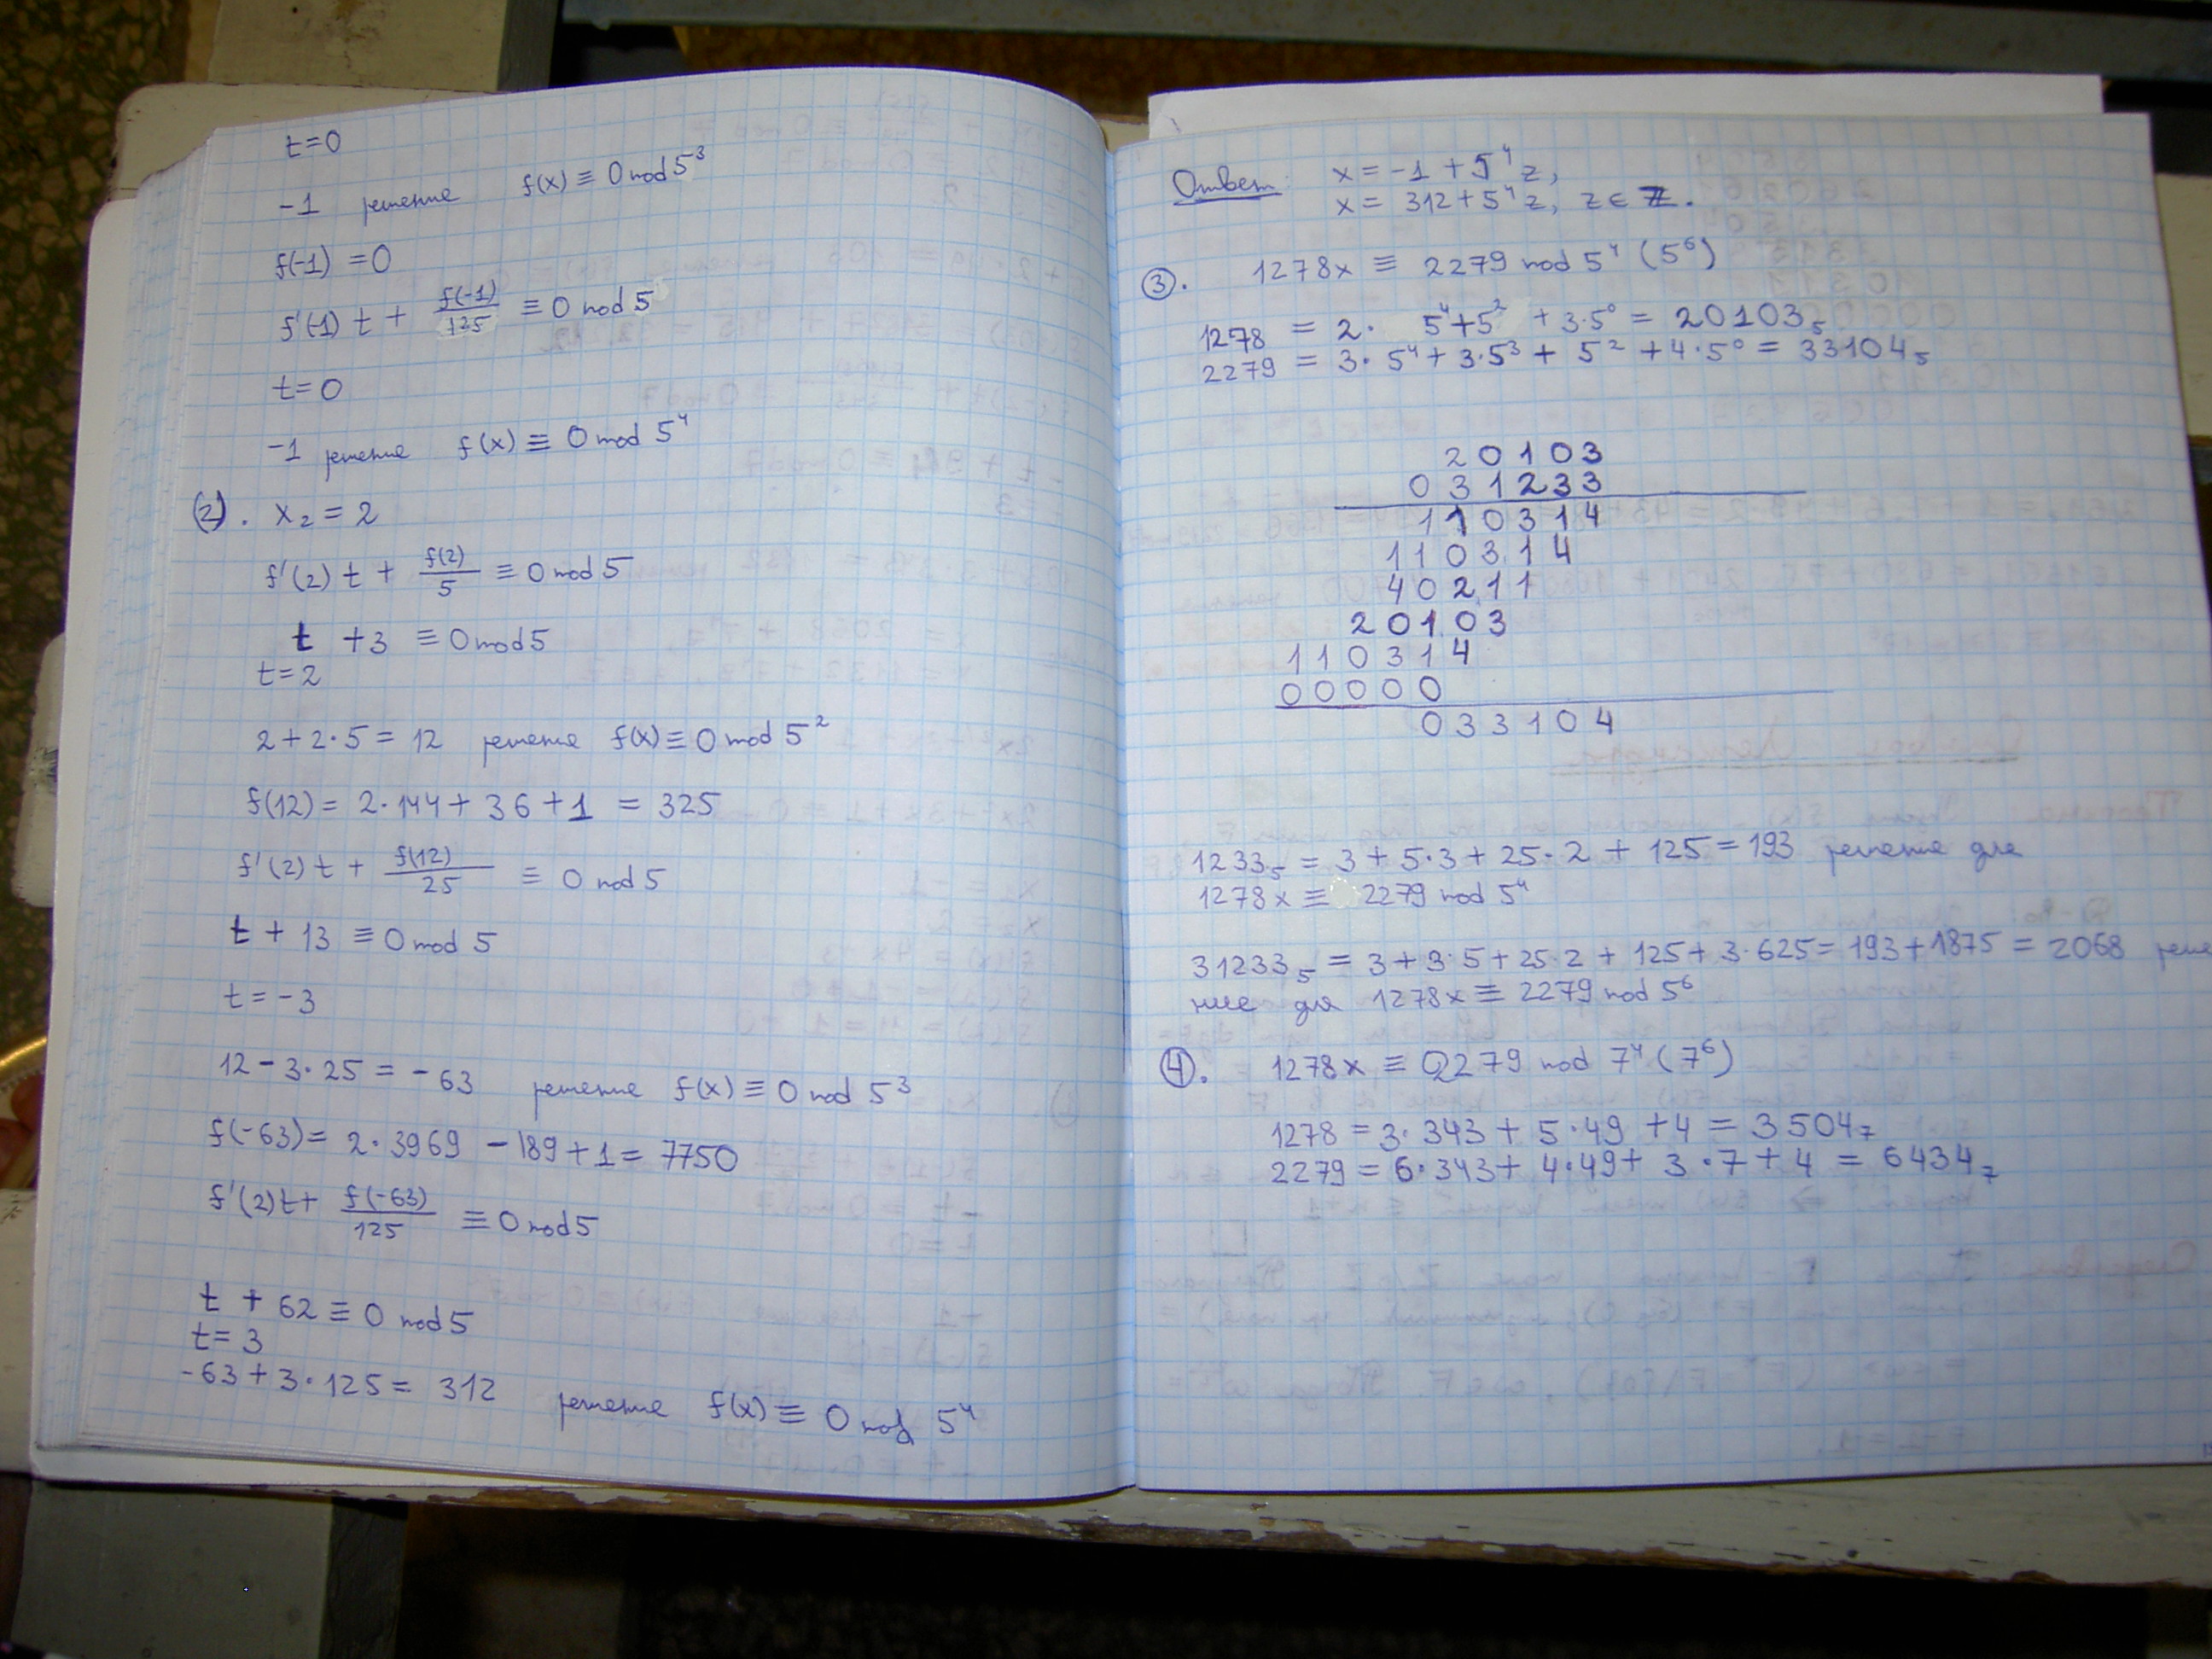 t=0
-1 решение f(x) ≡ 0 mod 5³
f(-1) = 0
f'(-1) t + f(-1)/125 ≡ 0 mod 5
t=0
-1 решение f(x) ≡ 0 mod 5⁴
(2). x₂ = 2
f'(2) t + f(2)/5 ≡ 0 mod 5
t + 3 ≡ 0 mod 5
t=2
2+2·5 = 12 решение f(x) ≡ 0 mod 5²
f(12) = 2·144 + 36 + 1 = 325
f'(2) t + f(12)/25 ≡ 0 mod 5
t + 13 ≡ 0 mod 5
t = -3
12 - 3·25 = -63 решение f(x) ≡ 0 mod 5³
f(-63) = 2·3969 - 189 + 1 = 7750
f'(2)t + f(-63)/125 ≡ 0 mod 5
t + 62 ≡ 0 mod 5
t = 3
-63 + 3·125 = 312 решение f(x) ≡ 0 mod 5⁴
Ответ: x = -1 + 5⁴z,
x = 312 + 5⁴z, z ∈ ℤ.
③. 1278x ≡ 2279 mod 5⁴ (5⁶)
1278 = 2· 5⁴+5² + 3·5⁰ = 20103₅
2279 = 3·5⁴ + 3·5³ + 5² + 4·5⁰ = 33104₅
20103
031233
110314
110314
40211
20103
110314
00000
033104
1233₅ = 3 + 5·3 + 25·2 + 125 = 193 решение для
1278x ≡ 2279 mod 5⁴
31233₅ = 3 + 3·5 + 25·2 + 125 + 3·625 = 193 + 1875 = 2068 реше
ние для 1278x ≡ 2279 mod 5⁶
④. 1278x ≡ 2279 mod 7⁴ (7⁶)
1278 = 3·343 + 5·49 + 4 = 3504₇
2279 = 6·343 + 4·49 + 3·7 + 4 = 6434₇